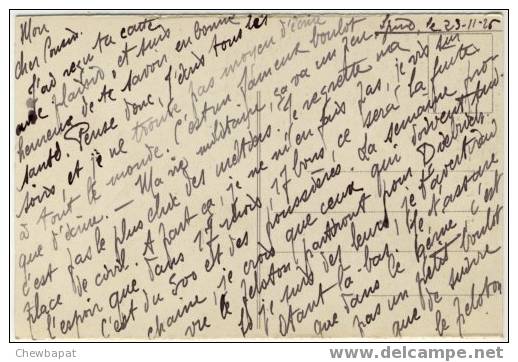 Spire, le 23-11-25
Mon
cher Cousin.
J'ai reçu ta carte
avec plaisir et suis
heureux de te savoir en bonne
santé. Pense donc, j'écris tous les
soirs, et je ne trouve pas moyen d'écrire
à tout le monde. C'est un fameux boulot
que d'écrire. — Ma vie militaire ça va un peu,
c'est pas le plus chic des métiers. Je regrette ma
place de civil. A part ça, je ne m'en fais pas, je vis sur
l'espoir que dans 17 mois, 17 bons, ce sera la fuite.
C'est du 500 et des poussières. La semaine pro-
chaine je crois que ceux qui doivent sui-
vre le peloton partiront pour
Si je suis des leurs, je t'avertirai
étant là-bas. Je t'assure
que dans le Génie c'est
pas un petit boulot
que de suivre
le peloton
Chewbapat
www.delcampe.net